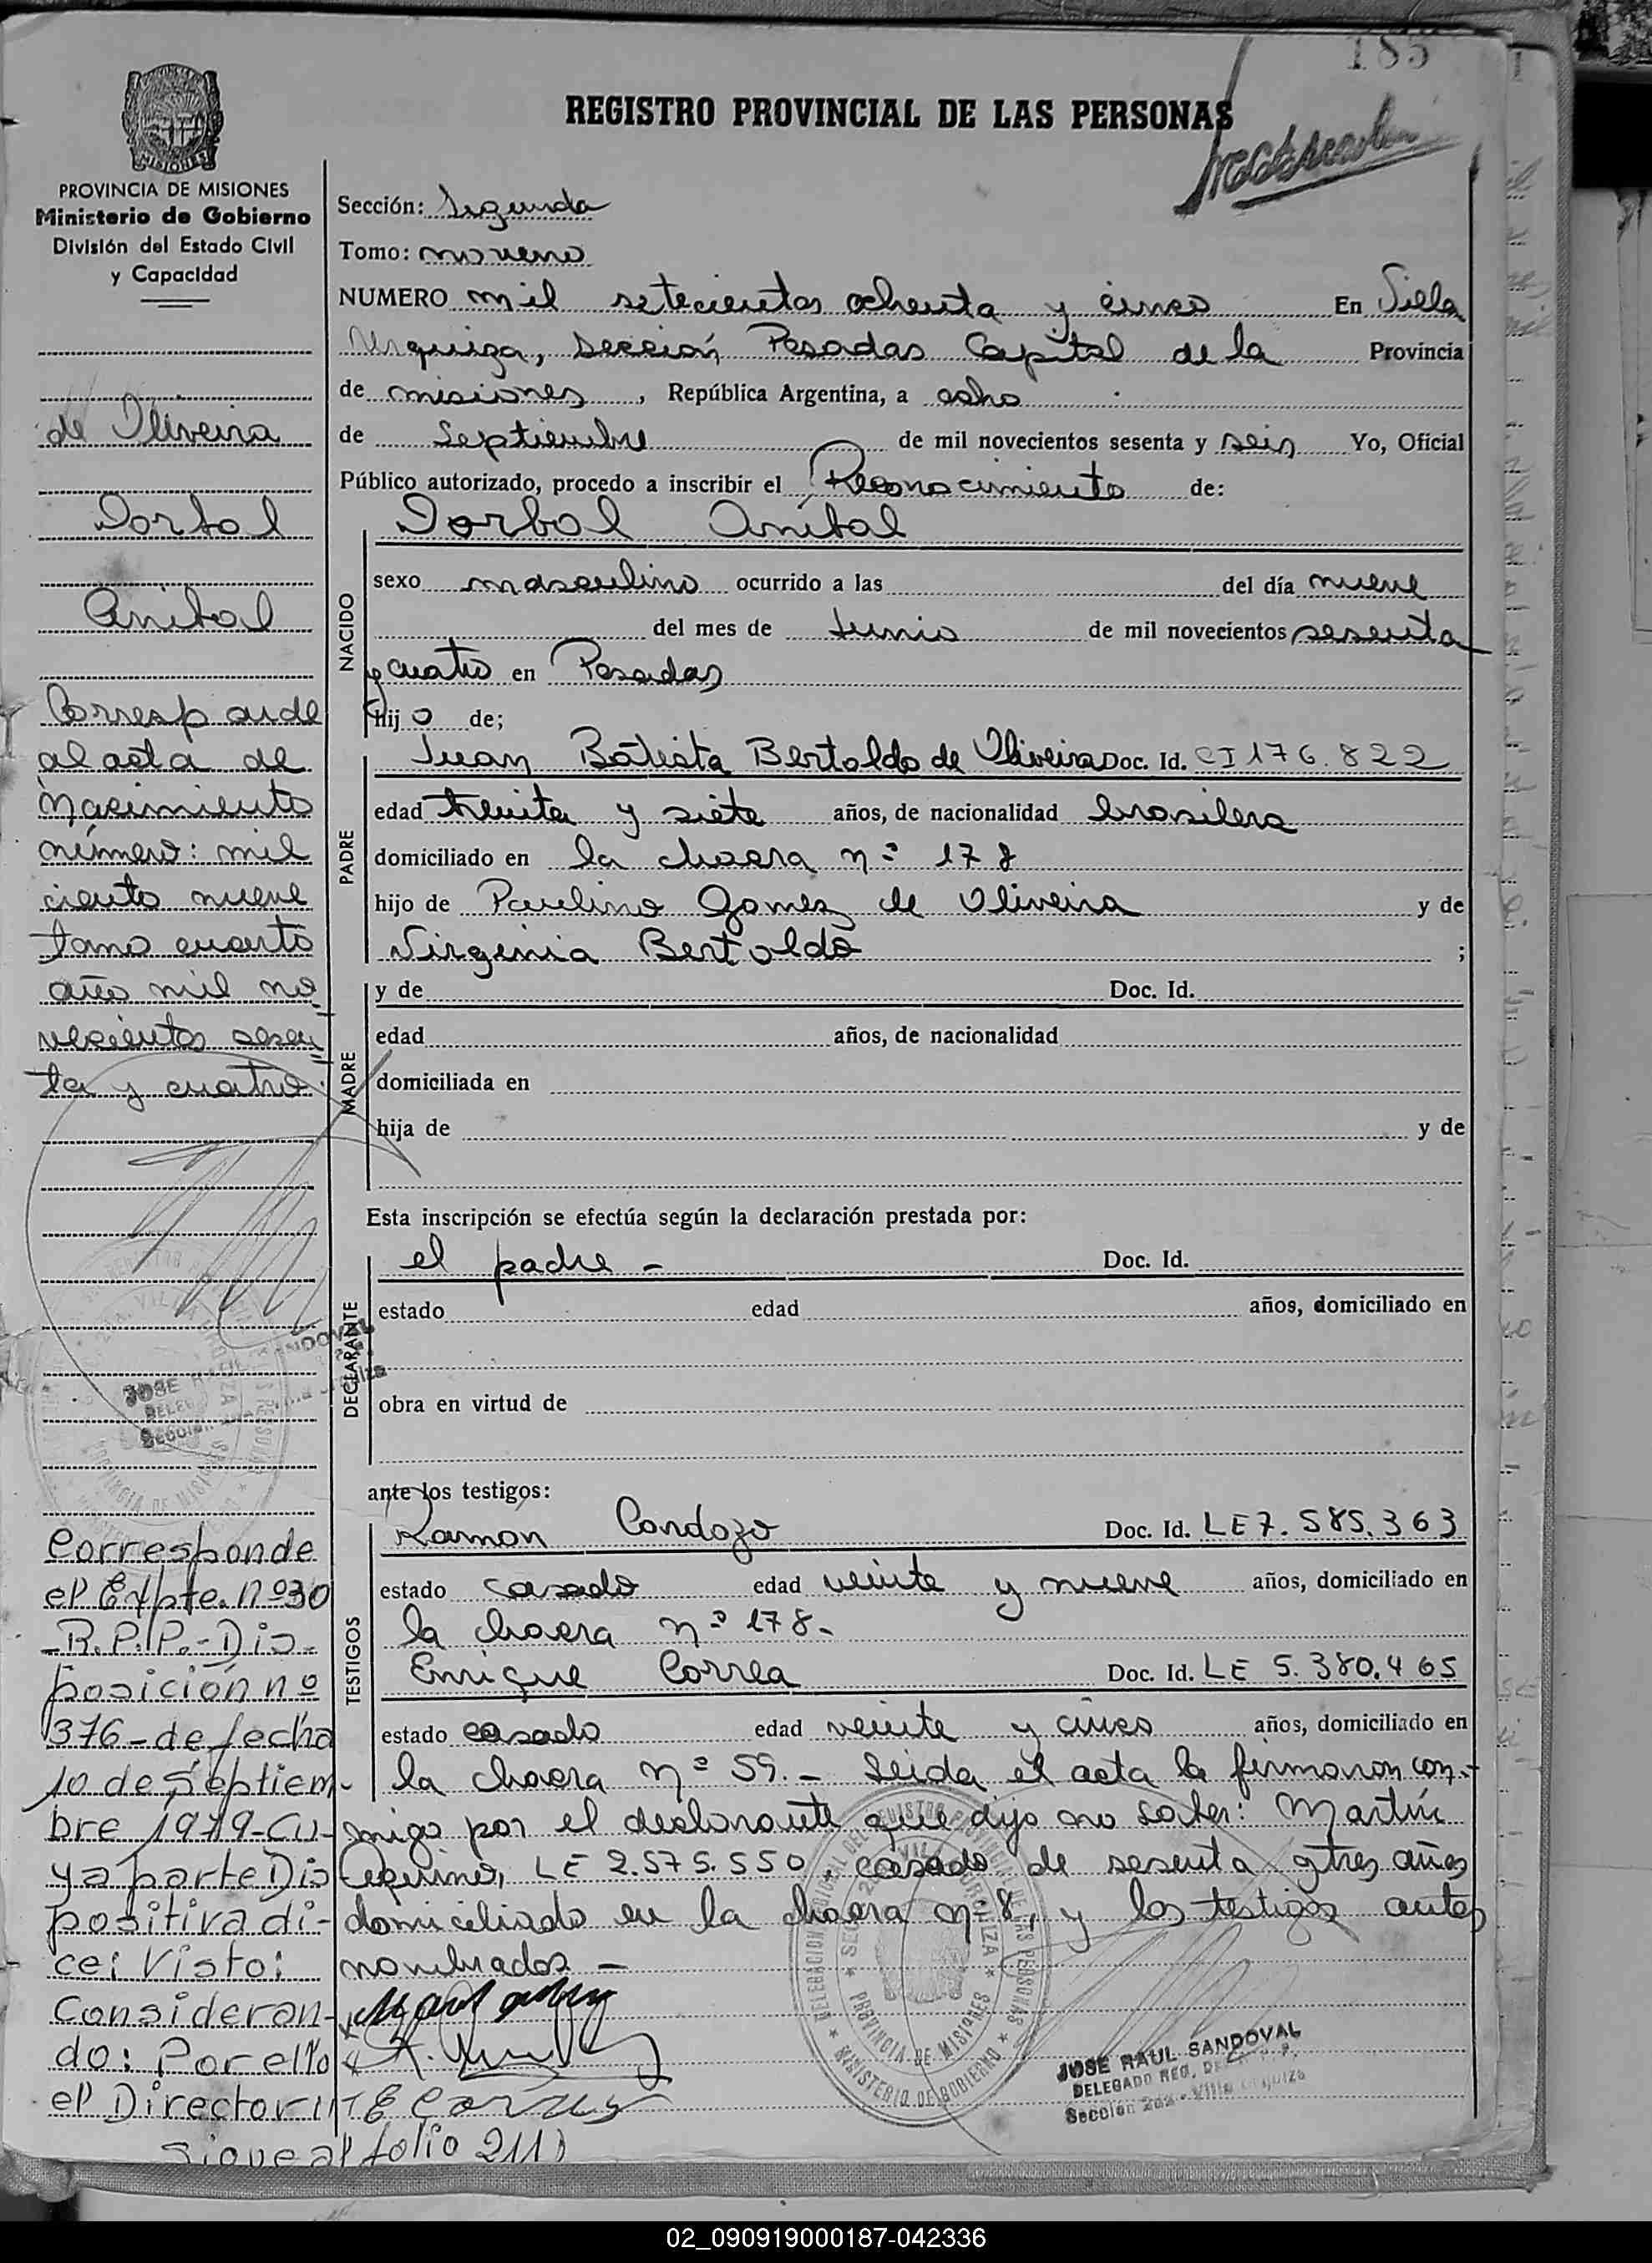 185
REGISTRO PROVINCIAL DE LAS PERSONAS
MISIONES
PROVINCIA DE MISIONES
Ministerio de Gobierno
División del Estado Civil
y Capacidad
de Oliveira
Dorbal
Anibal
Corresponde
al acta de
Nacimiento
número: mil
ciento nueve
tomo cuarto
año mil no
vecientos sesen
ta y cuatro.
Corresponde
el Expte. nº 30
-R.P.P.- Dis-
posición nº
376 - de fecha
10 de Septiem-
bre 1979- Cu-
ya parte Dis
positiva di-
ce: Visto:
Consideran-
do: Por ello
el Director
Sigue al folio 211
Sección: Segunda
Tomo: noveno
NUMERO mil setecientos ochenta y cinco En Villa
Urquiza, Sección Posadas Capital de la Provincia
de misiones, República Argentina, a ocho
de Septiembre de mil novecientos sesenta y seis Yo, Oficial
Público autorizado, procedo a inscribir el Reconocimiento de:
Dorbal Anibal
NACIDO
sexo masculino ocurrido a las del día nueve
del mes de Junio de mil novecientos sesenta
y cuatro en Posadas
Hijo de;
PADRE
Juan Batista Bertoldo de Oliveira Doc. Id. CI 176.822
edad treinta y siete años, de nacionalidad brasilera
domiciliado en la chacra nº 178
hijo de Paulino Gomez de Oliveira y de
Virginia Bertoldo ;
MADRE
y de Doc. Id.
edad años, de nacionalidad
domiciliada en
hija de y de
Esta inscripción se efectúa según la declaración prestada por:
DECLARANTE
el padre - Doc. Id.
estado edad años, domiciliado en
obra en virtud de
ante los testigos:
TESTIGOS
Ramon Cardozo Doc. Id. LE 7.585.363
estado casado edad veinte y nueve años, domiciliado en
la chacra nº 178-
Enrique Correa Doc. Id. LE 5.380.465
estado casado edad veinte y cinco años, domiciliado en
la chacra nº 59.- Leida el acta la firmaron con-
migo por el declarante que dijo no saber: Martin
Aquino, LE 2.575.550, casado de sesenta y tres años
domiciliado en la chacra nº 8, y los testigos antes
nombrados -
E Correa
JOSE RAUL SANDOVAL
DELEGADO REG.
Sección 2da - Villa Urquiza
PROVINCIA DE MISIONES
MINISTERIO DE GOBIERNO
02_090919000187-042336